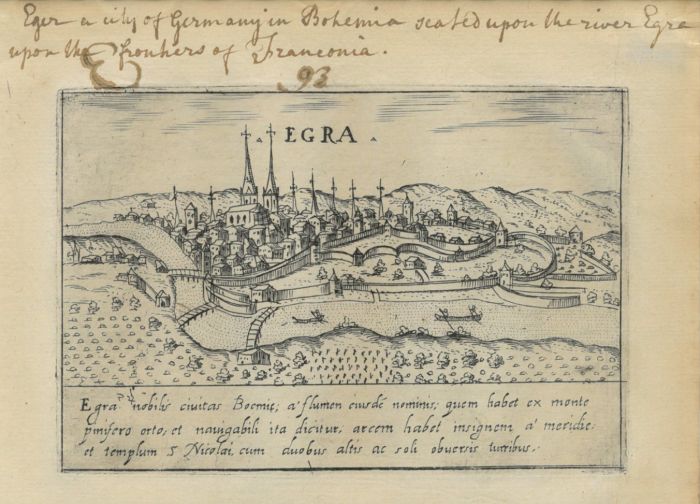 Eger a city of Germany in Bohemia seated upon the river Egra
upon the frontiers of Franconia.
93
EGRA
Egra nobilis civitas Boemię; a' flumen eiusdē nominis; quem habet ex monte
pinifero orto; et navigabili ita dicitur, arcem habet insignem a' meridie;
et templum S Nicolai, cum duobus altis ac soli obversis turribus.